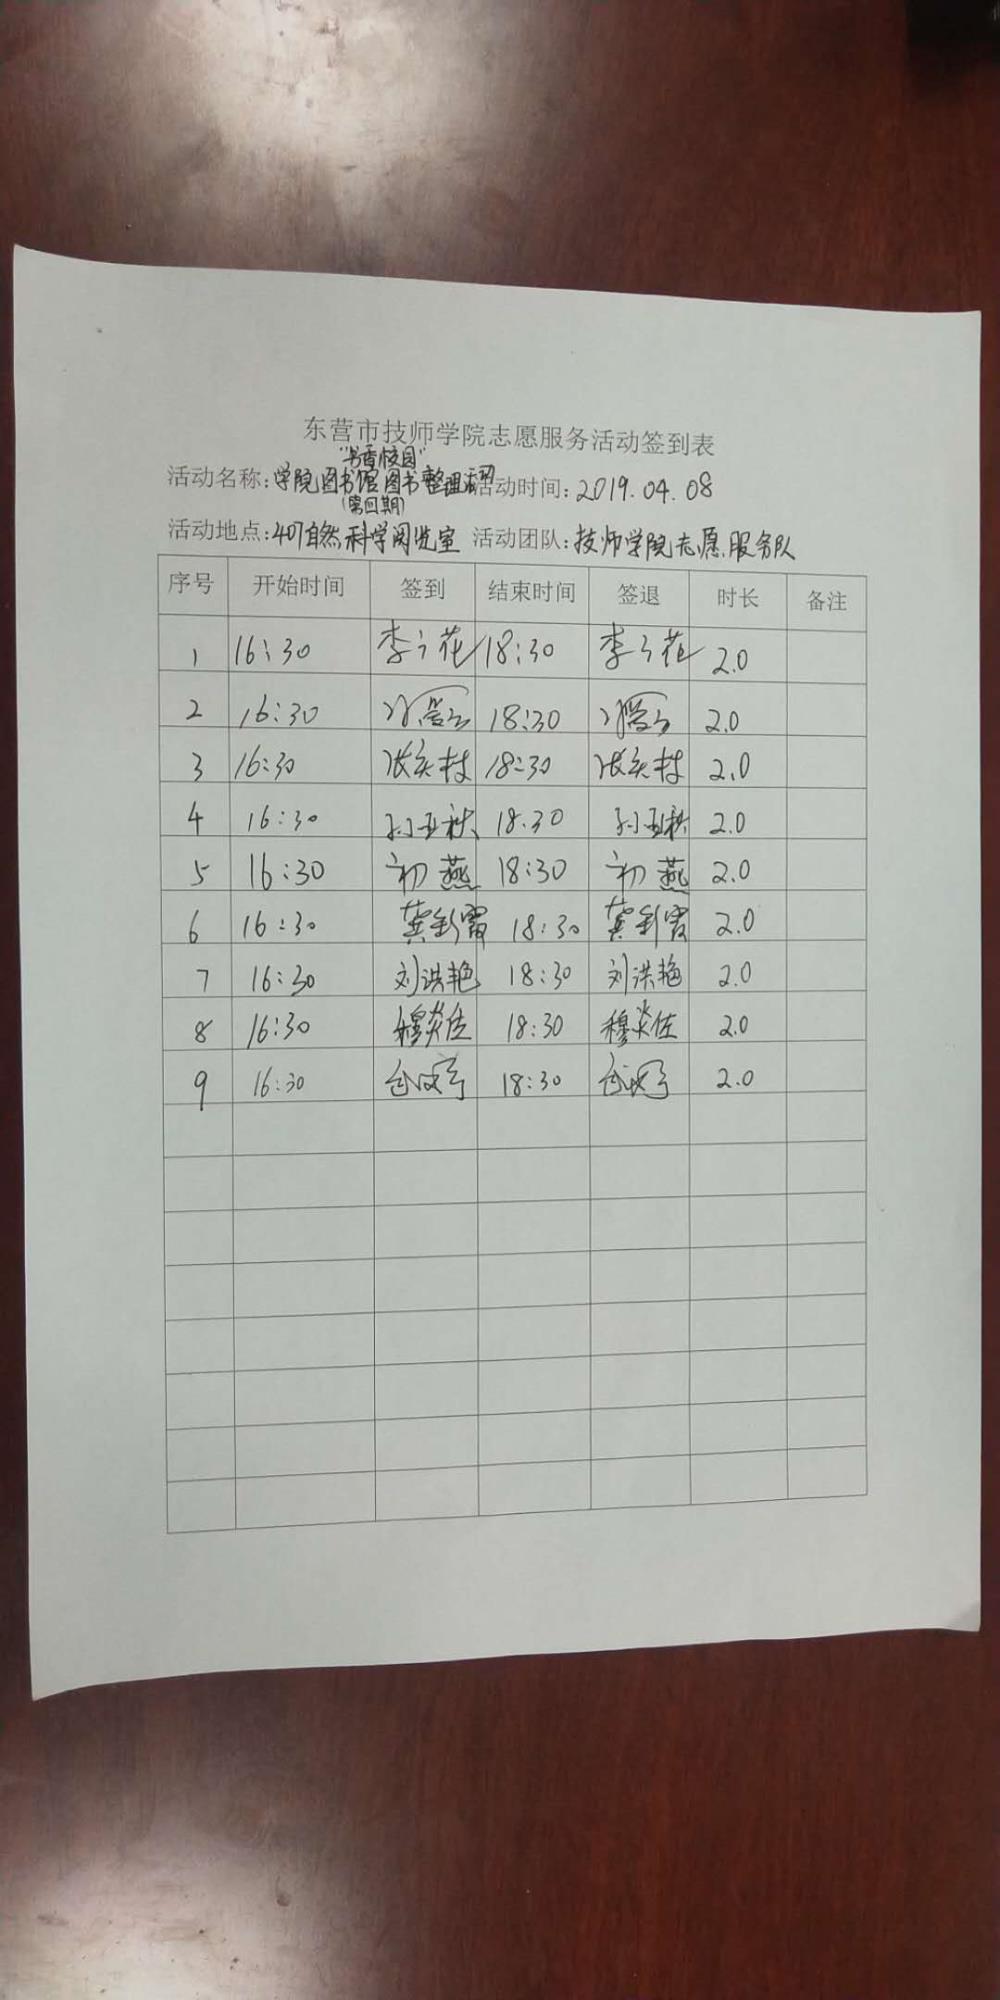 东营市技师学院志愿服务活动签到表
"书香校园"
活动名称:学院图书馆图书整理活动 活动时间:2019.04.08
(第四期)
活动地点:407自然科学阅览室 活动团队:技师学院志愿服务队
序号 开始时间 签到 结束时间 签退 时长 备注
1 16:30 李 花 18:30 李 花 2.0
2 16:30 18:30 2.0
3 16:30 张 村 18:30 张 村 2.0
4 16:30 孙玉秋 18.30 孙玉秋 2.0
5 16:30 初燕 18:30 初燕 2.0
6 16:30 龚彩霞 18:30 龚彩霞 2.0
7 16:30 刘洪艳 18:30 刘洪艳 2.0
8 16:30 穆炎佐 18:30 穆炎佐 2.0
9 16:30 18:30 2.0